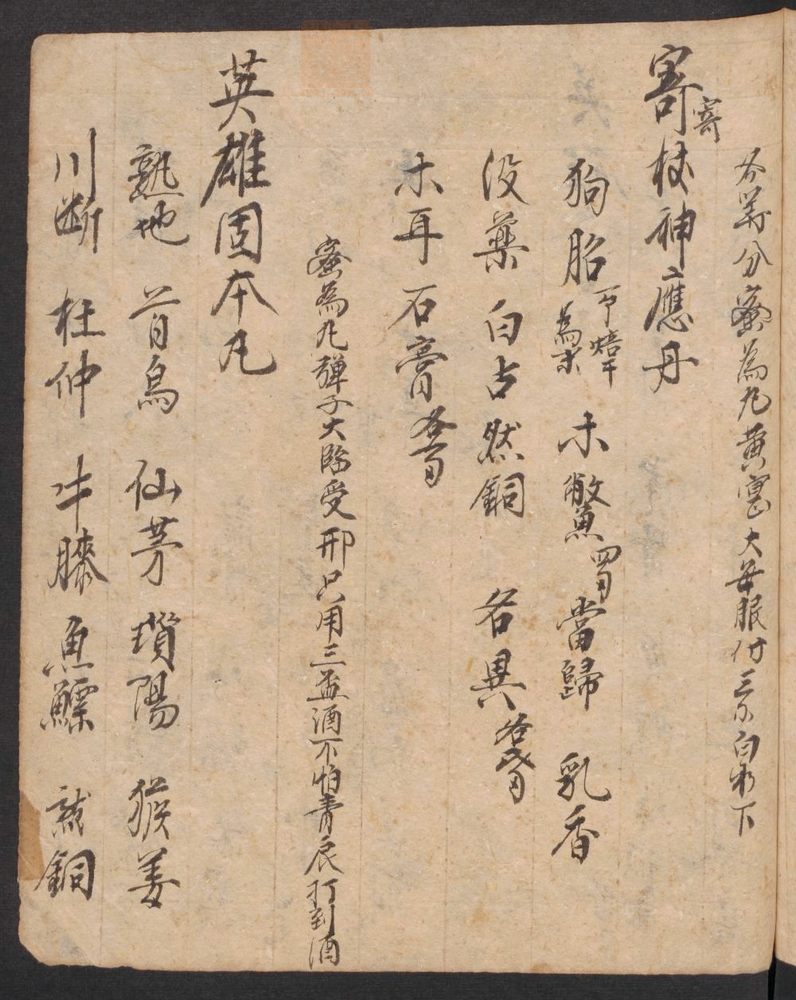 各等分蜜為丸黃豆大每服付三分白水下
寄杖神應丹
寄
狗胎 為末 木鱉 當歸 乳香
没藥 白占 然銅 名異
木耳 石膏
蜜為丸彈子大臨受刑只用三盃酒不怕青衣打到酒
英雄固本丸
熟地 首烏 仙茅 瑣陽 猴姜
川断 杜仲 牛膝 魚鰾 然銅